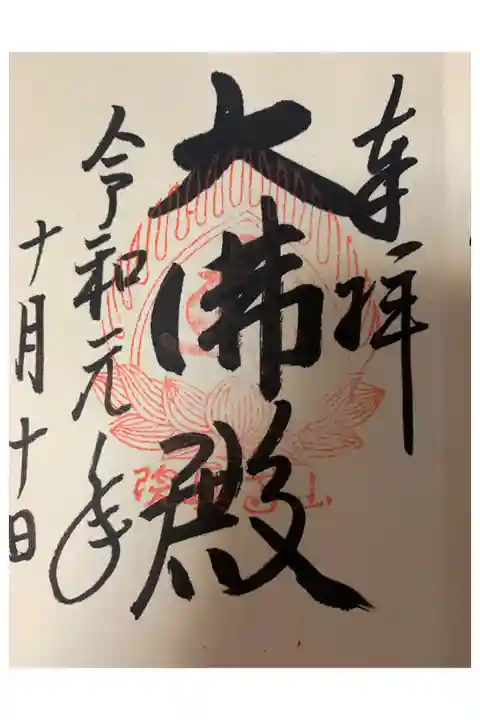 奉拝
大佛殿
令和元年
十月十日